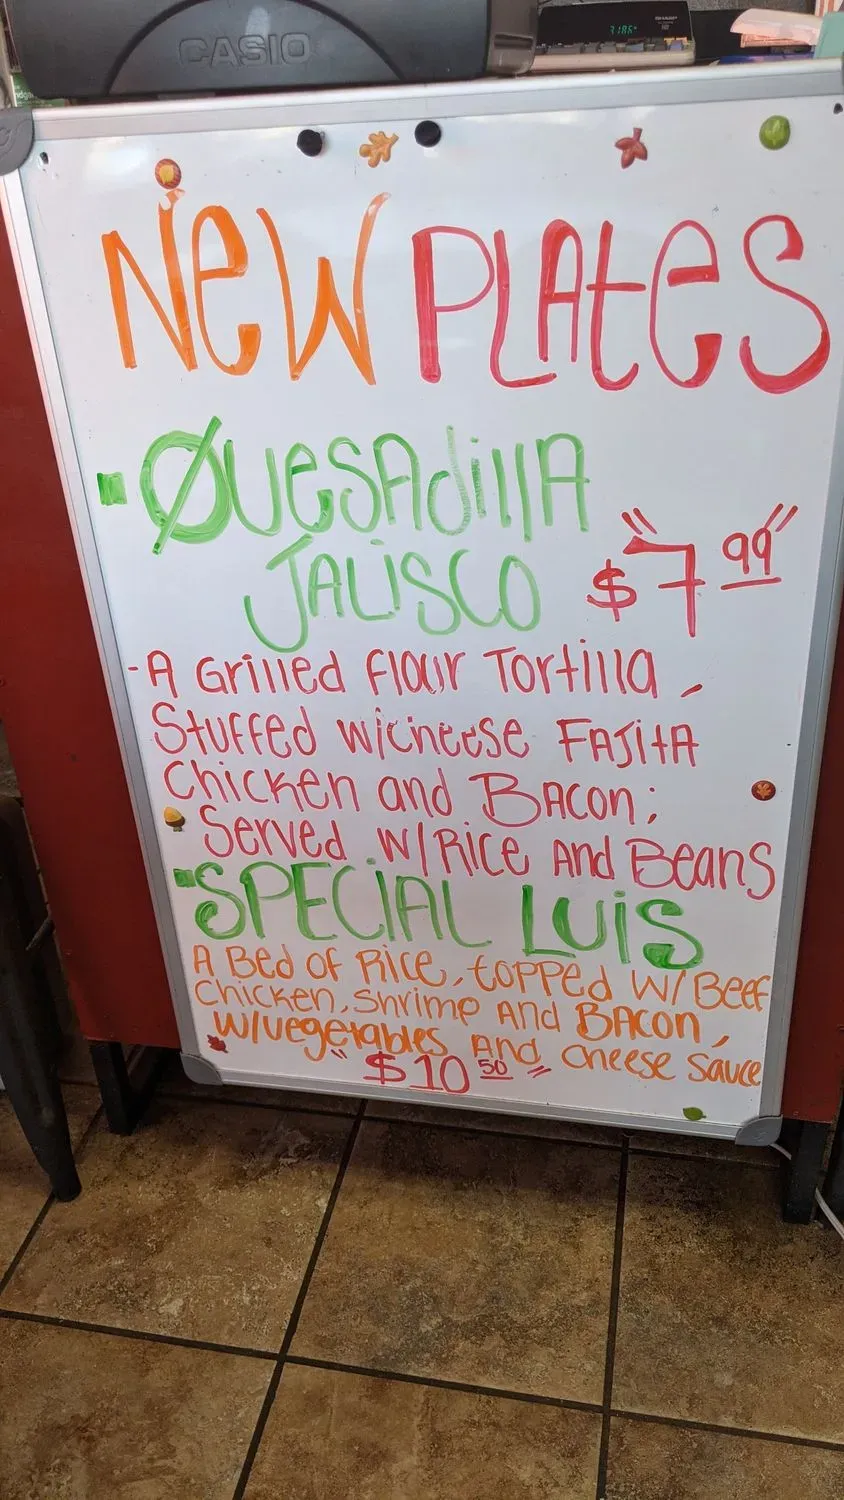 CASIO
New Plates
Quesadilla
Jalisco $"7.99"
-A Grilled flour Tortilla,
Stuffed w/cheese Fajita
Chicken and Bacon;
Served w/Rice and Beans
SPECiAL LUiS
A Bed of Rice, topped w/Beef
Chicken, Shrimp and Bacon,
w/vegetables and cheese sauce
"$10.50"